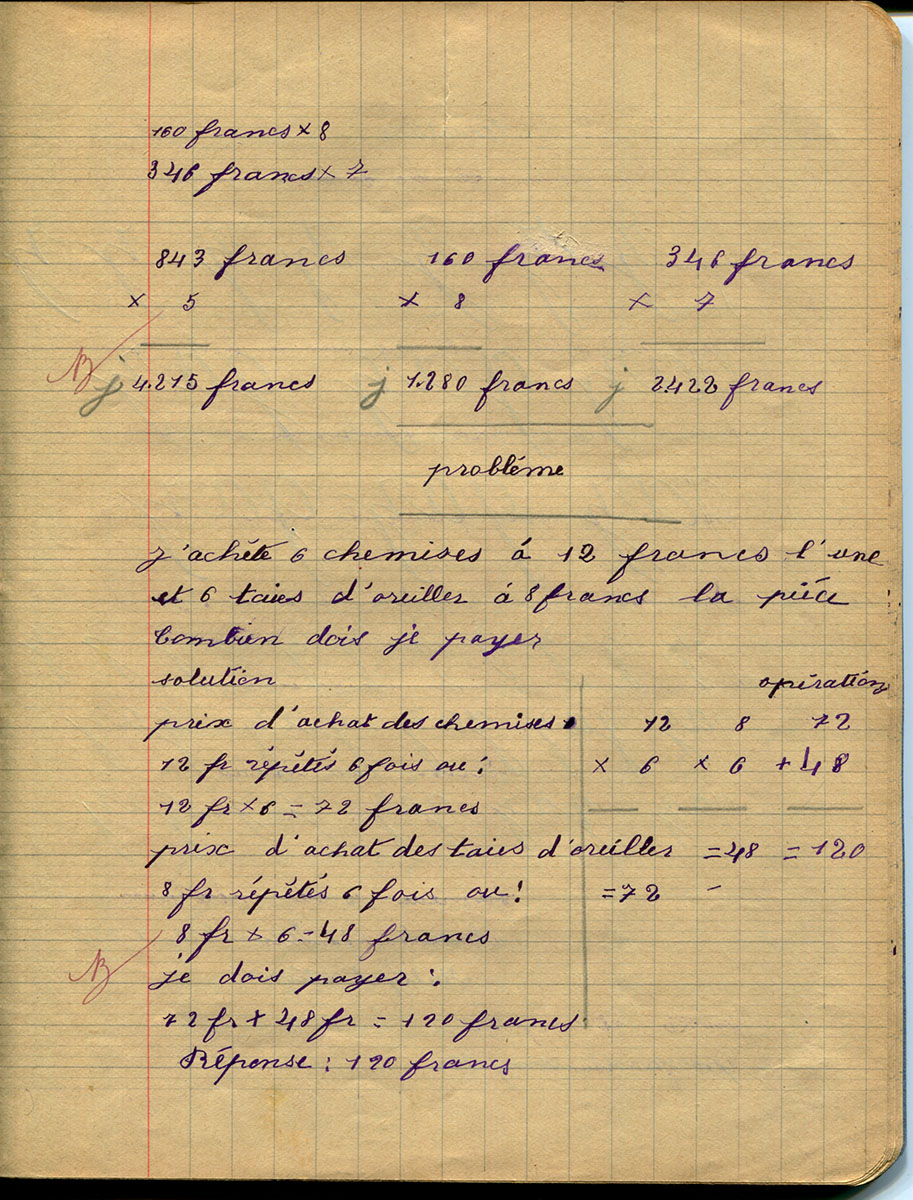 160 francs × 8
346 francs × 7
843 francs 160 francs 346 francs
× 5 × 8 × 7
B j 4.215 francs j 1.280 francs j 2422 francs
probléme
j'achète 6 chemises á 12 francs l'une
et 6 taies d'oreiller á 8 francs la piéce
Combien dois je payer
solution opérations
prix d'achat des chemises. 12 8 72
12 fr répétés 6 fois ou : × 6 × 6 + 48
12 fr × 6 = 72 francs
prix d'achat des taies d'oreiller = 48 = 120
8 fr répétés 6 fois ou ! = 72 -
8 fr × 6 = 48 francs
B je dois payer :
72 fr + 48 fr = 120 francs
Réponse : 120 francs